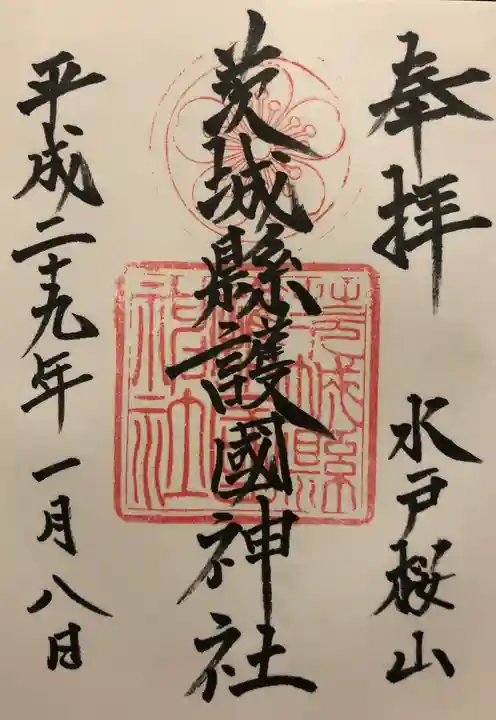 奉拝
水戸桜山
茨城縣護國神社
平成二十九年一月八日
茨城縣護國神社